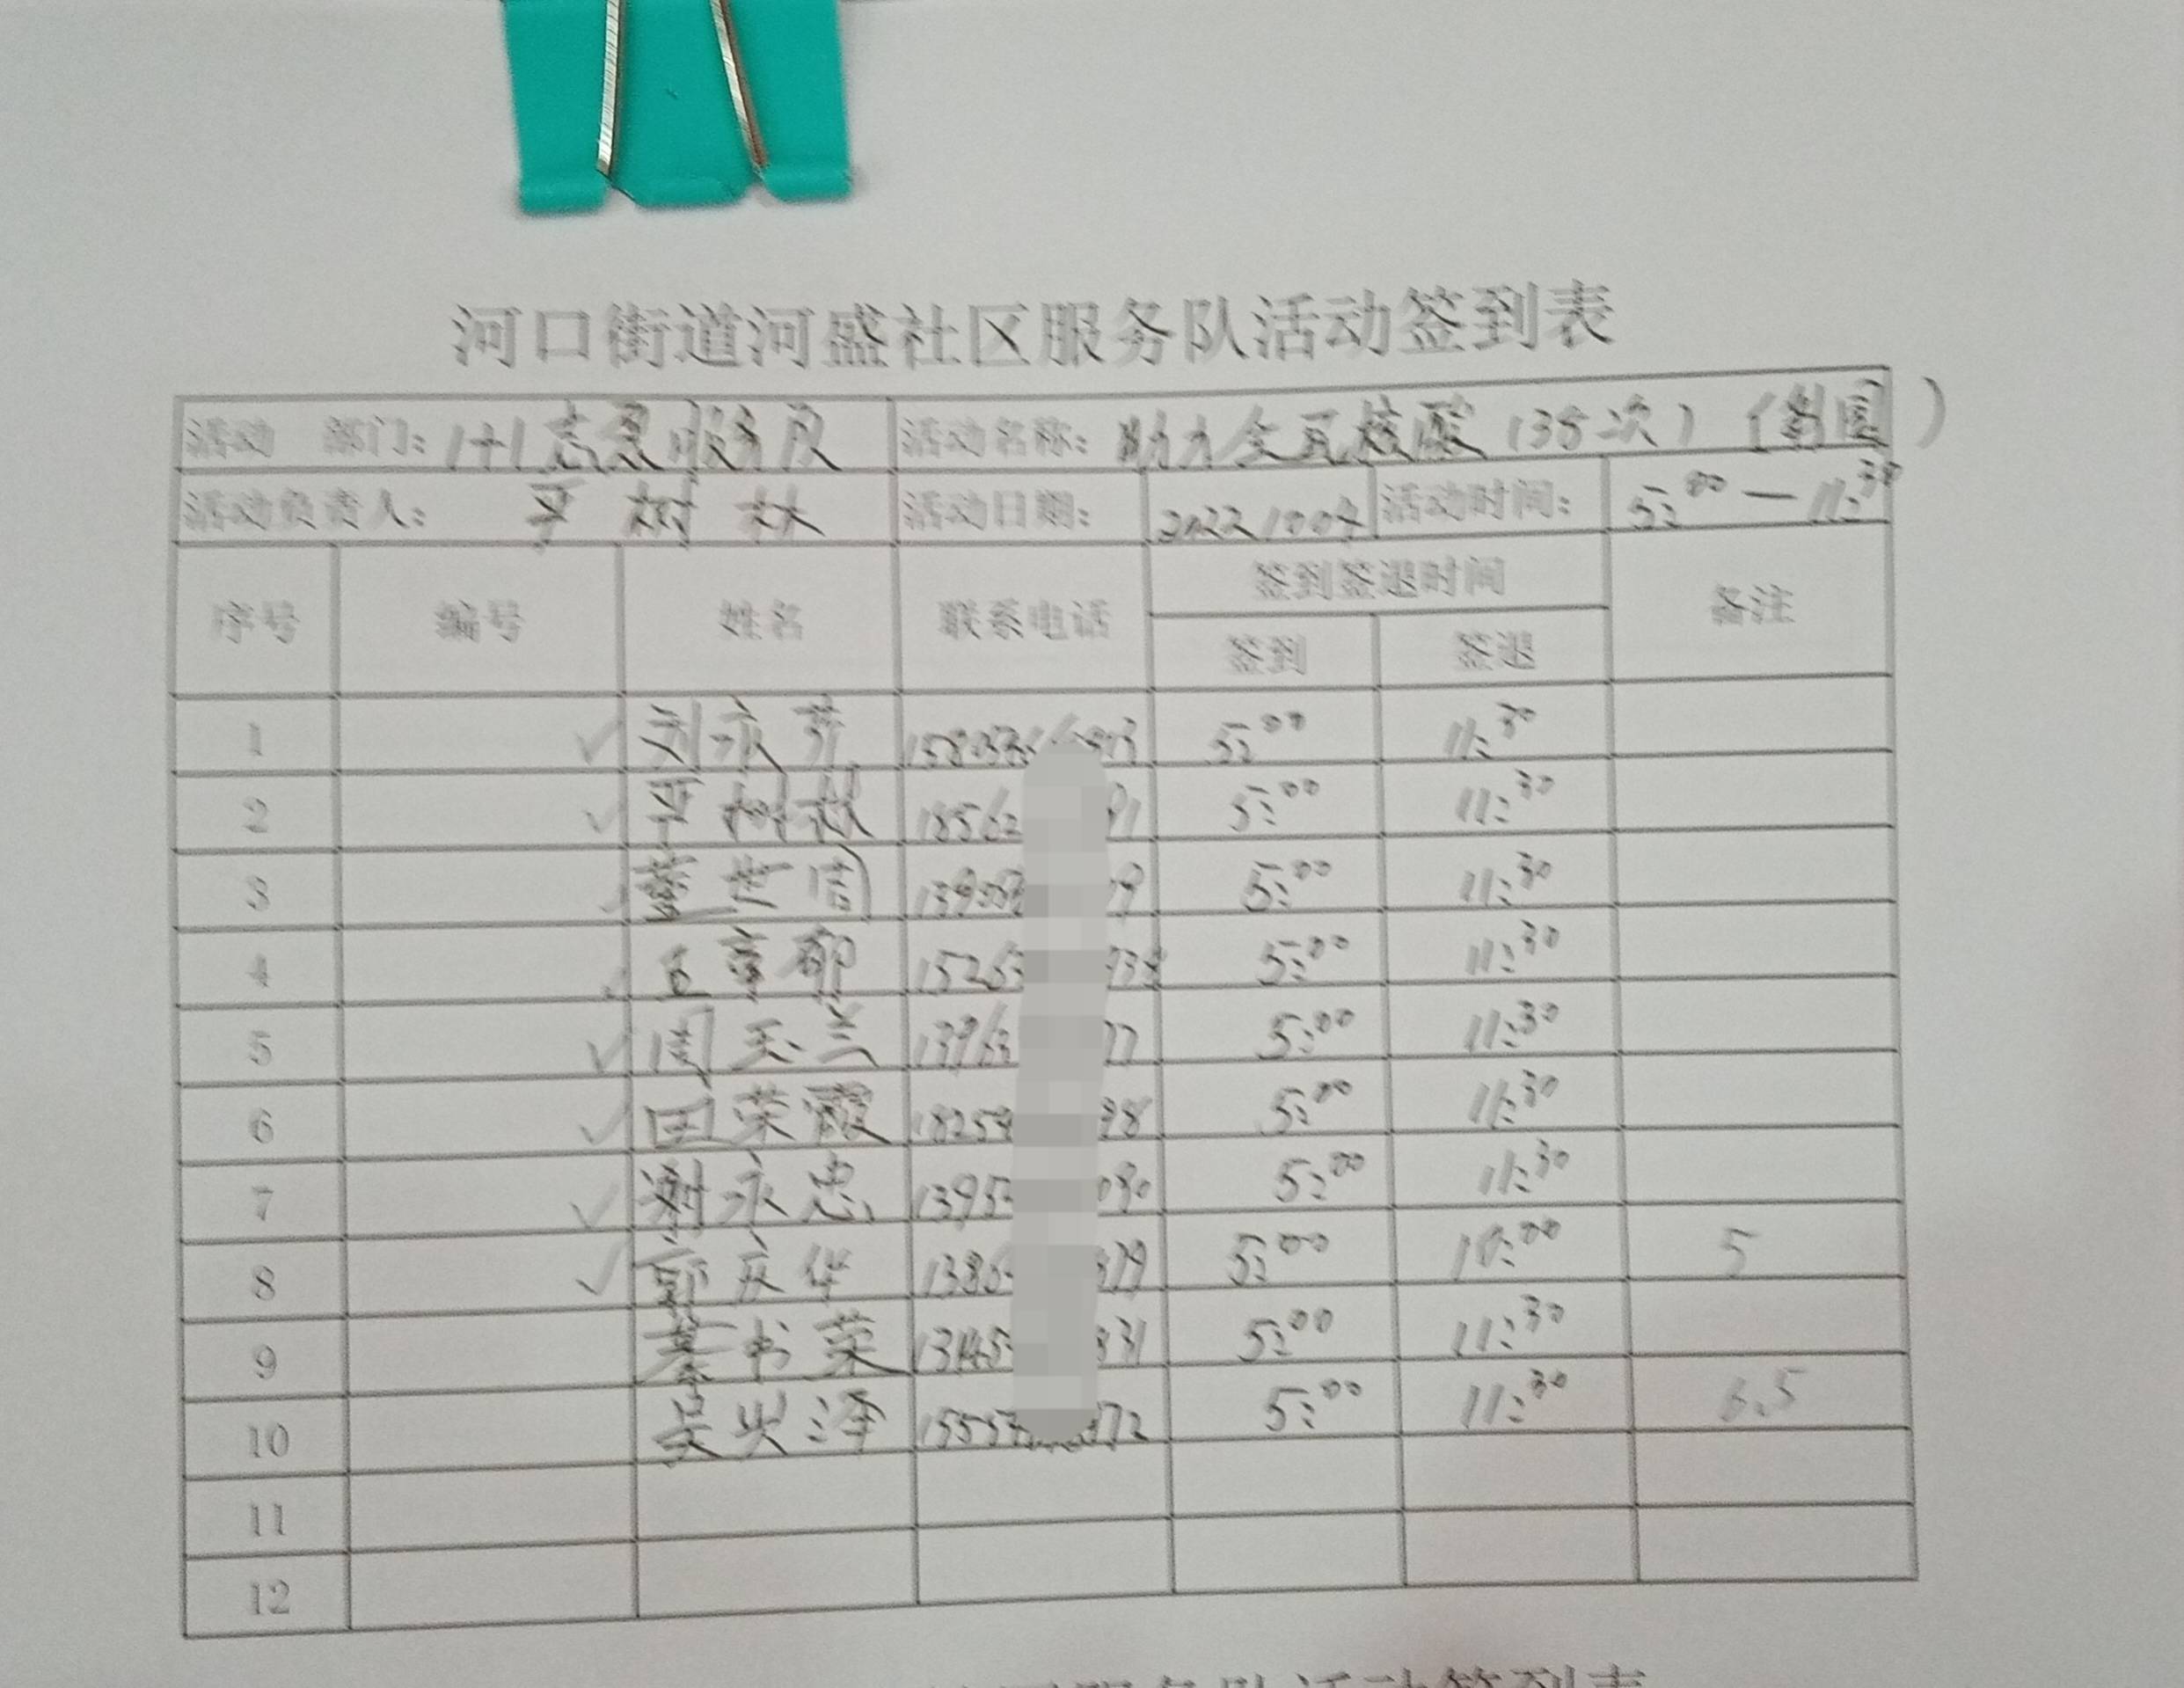 河口街道河盛社区服务队活动签到表
活动 部门：1+1志愿服务队 活动名称：助力全员核酸（38次）
活动负责人：平树林 活动日期：20221004 活动时间：5:00—11:30
序号 编号 姓名 联系电话 签到签退时间 备注
签到 签退
1 ✓ 刘永芬 5:00 11:30
2 ✓ 平树林 18562 91 5:00 11:30
3 ✓ 5:00 11:30
4 ✓ 王章郁 5:00 11:30
5 ✓ 周玉兰 77 5:00 11:30
6 ✓ 田荣霞 18259 98 5:00 11:30
7 ✓ 谢永忠 13953 090 5:00 11:30
8 ✓ 郭庆华 5:00 10:00 5
9 綦书荣 831 5:00 11:30
10 吴兴泽 15553 372 5:00 11:30 6.5
11
12
服务队活动签到表